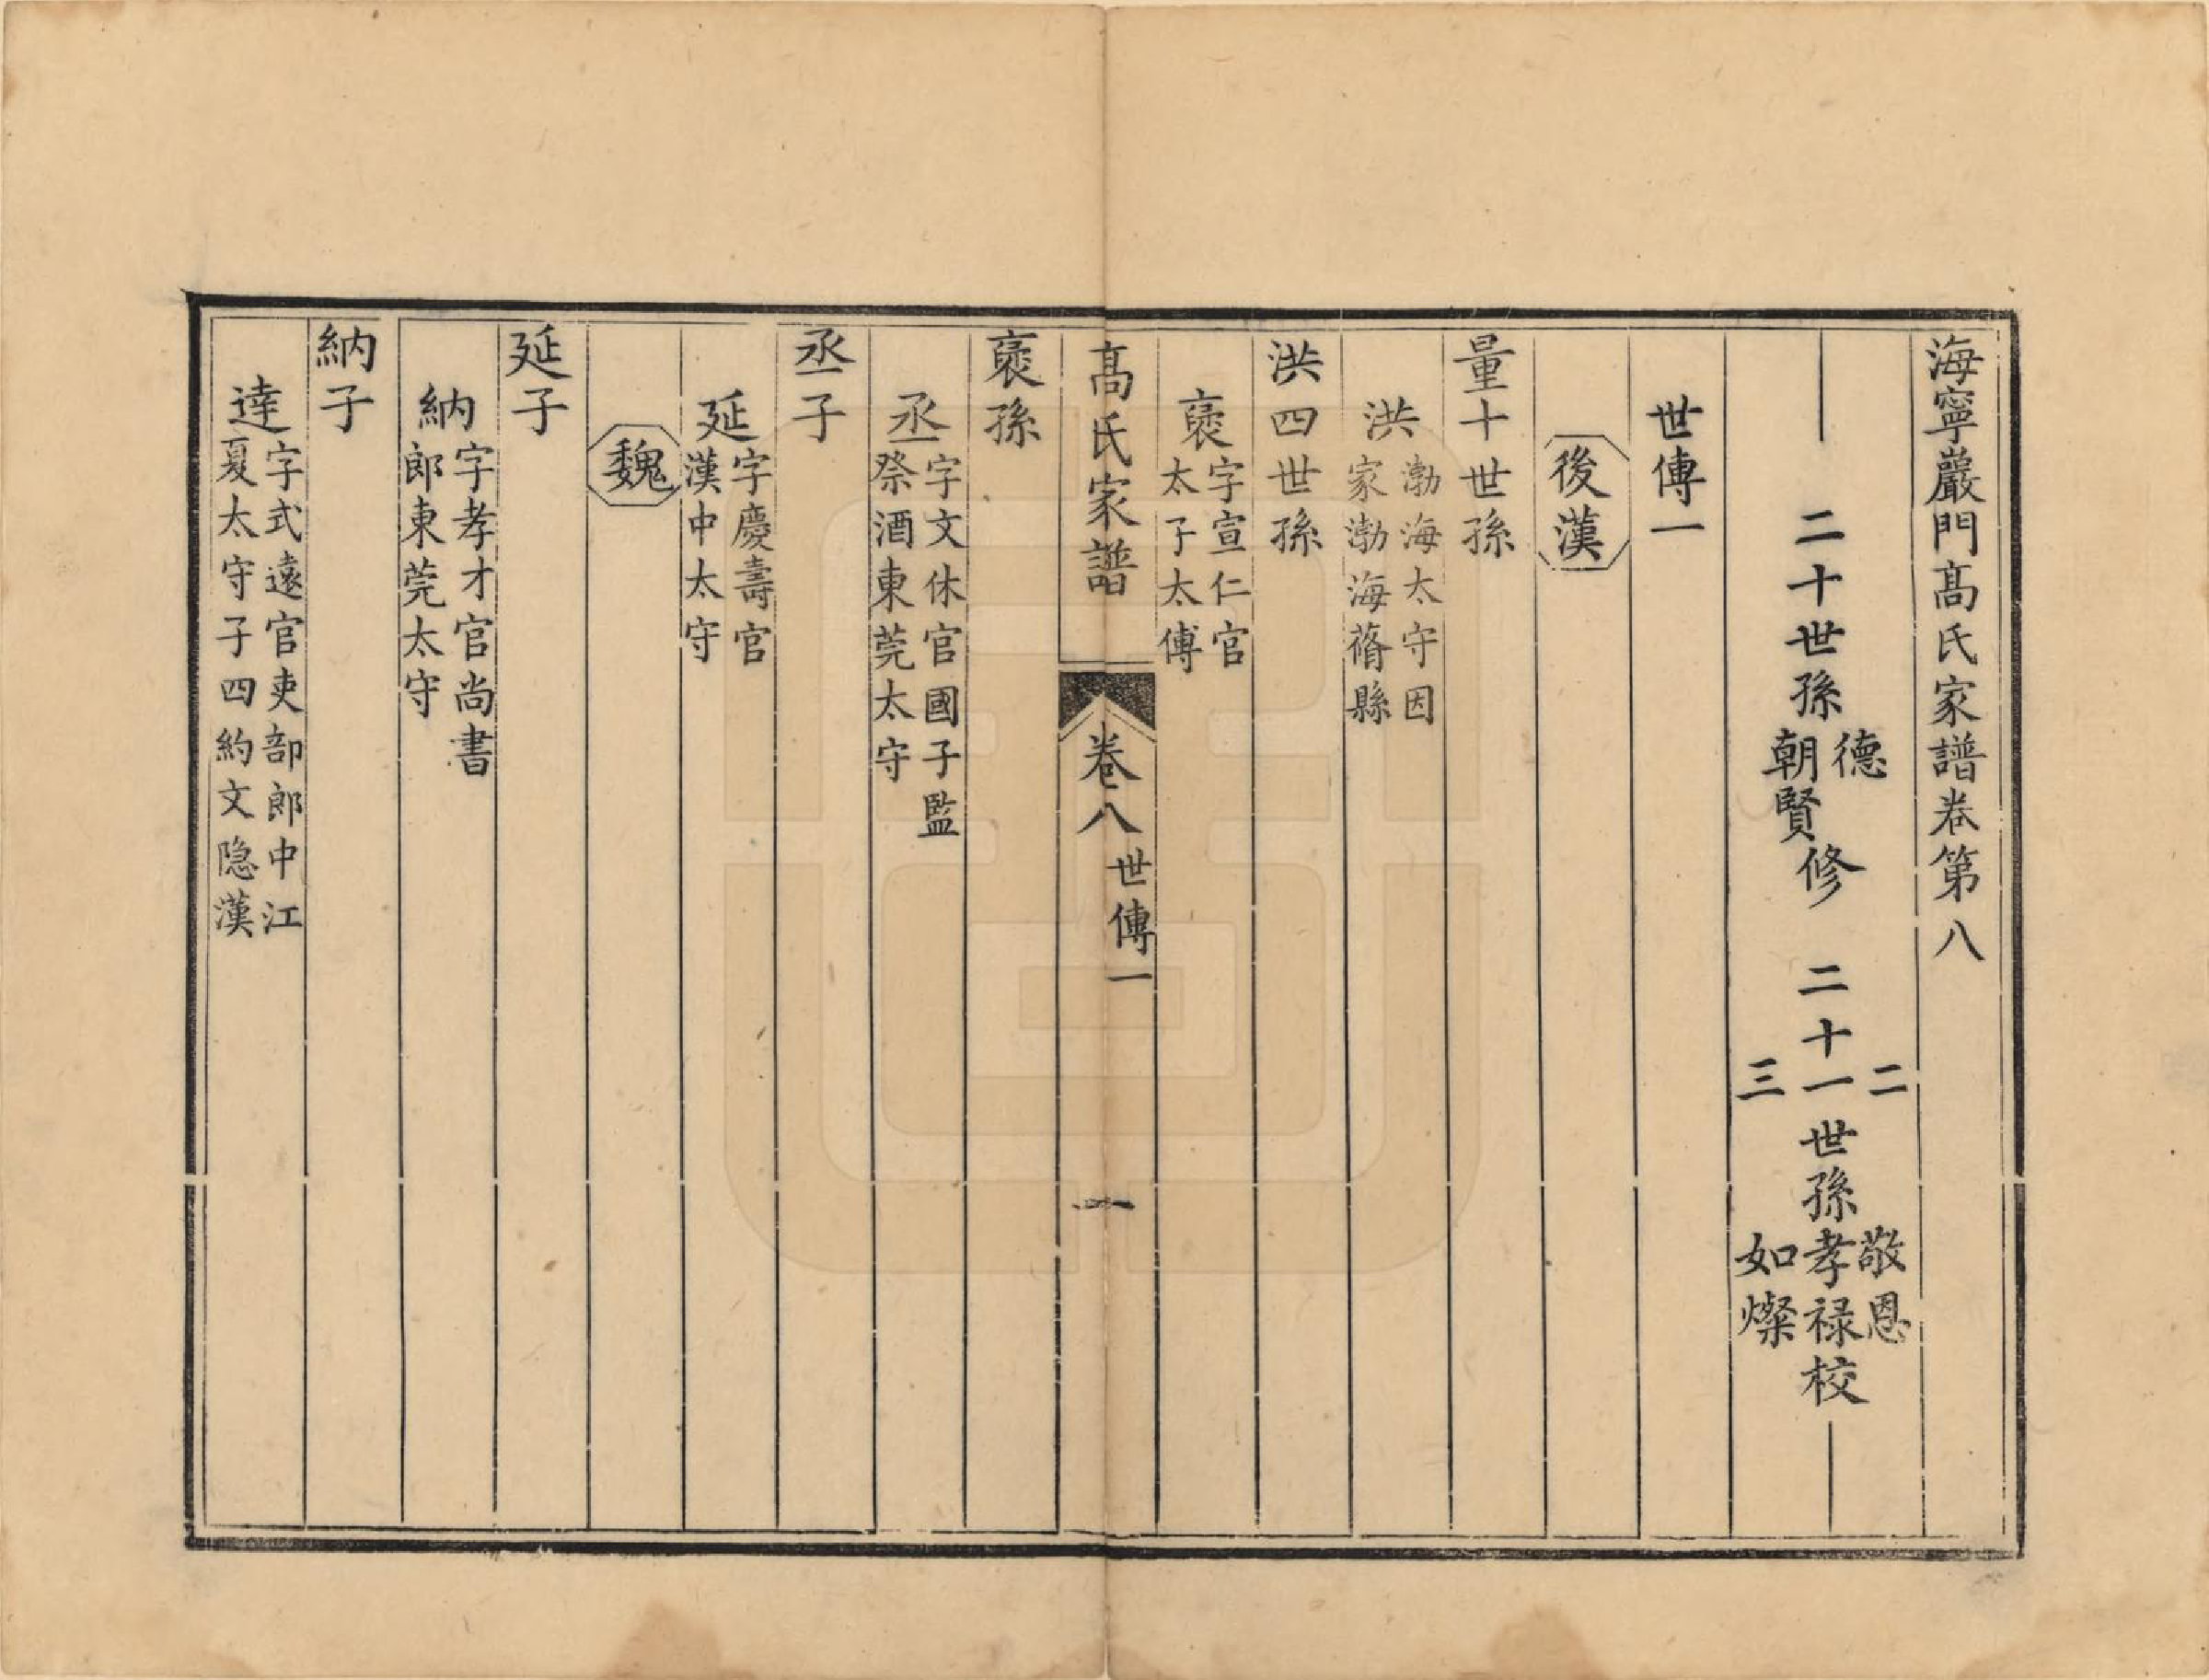 海寧巖門高氏家譜卷第八
二十世孫德朝賢修 二十二一三世孫敬恩孝祿如燦校
世傳一
後漢
量十世孫
洪渤海太守因家渤海蓨縣
洪四世孫
褒字宣仁官太子太傅
高氏家譜 卷八 世傳一 一
褒孫
丞字文休官國子監祭酒東莞太守
丞子
延字慶壽官漢中太守
魏
延子
納字孝才官尚書郎東莞太守
納子
達字式遠官吏部郎中江夏太守子四約文隐漢